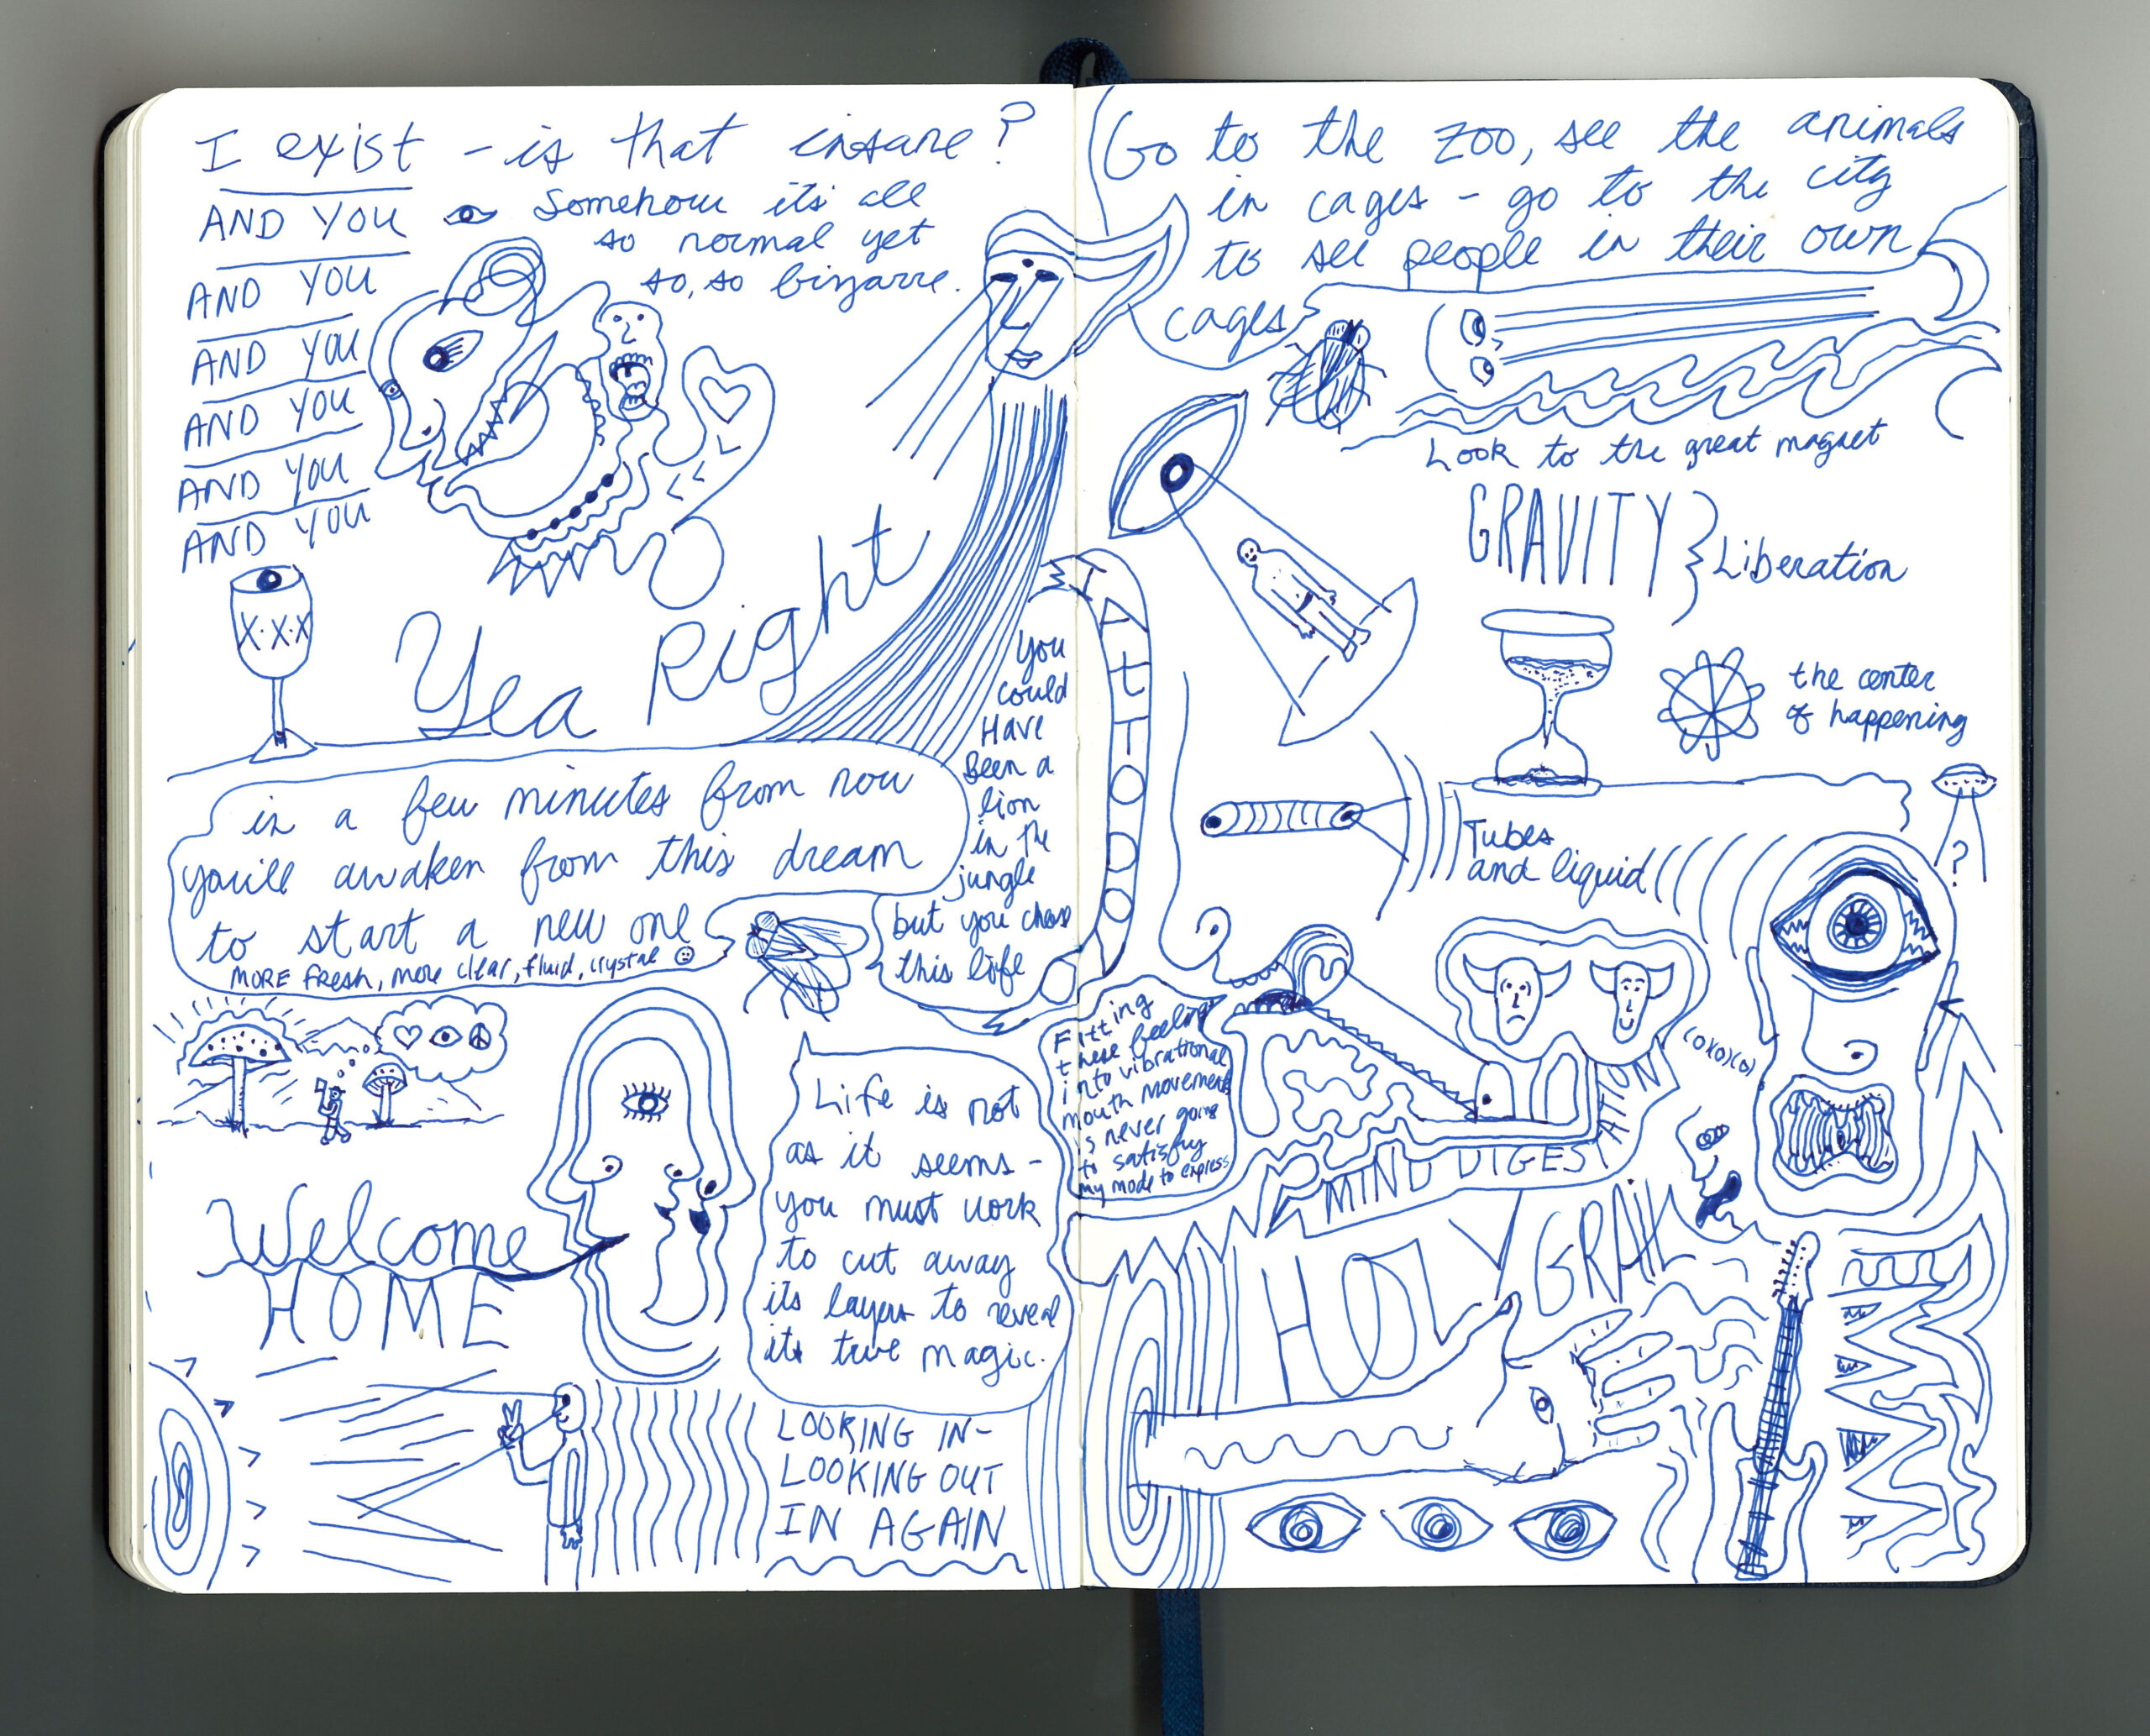 I exist - is that insane?
AND YOU
AND YOU
AND YOU
AND YOU
AND YOU
AND YOU
Somehow it's all
so normal yet
so, so bizarre.
X·X·X
Yea Right
in a few minutes from now
you'll awaken from this dream
to start a new one
MORE FRESH, more clear, fluid, crystal
You
could
Have
Been a
lion
in the
jungle
but you chose
this life
Welcome
HOME
Life is not
as it seems -
you must work
to cut away
its layers to reveal
its true magic.
LOOKING IN-
LOOKING OUT
IN AGAIN
Go to the zoo, see the animals
in cages - go to the city
to see people in their own
cages
Look to the great magnet
GRAVITY } Liberation
the center
of happening
TATTOO
Tubes
and liquid
?
Fitting
these feelings
into vibrational
mouth movements
is never going
to satisfy
my mode to express
MIND DIGESTATION
HOLY GRAIL